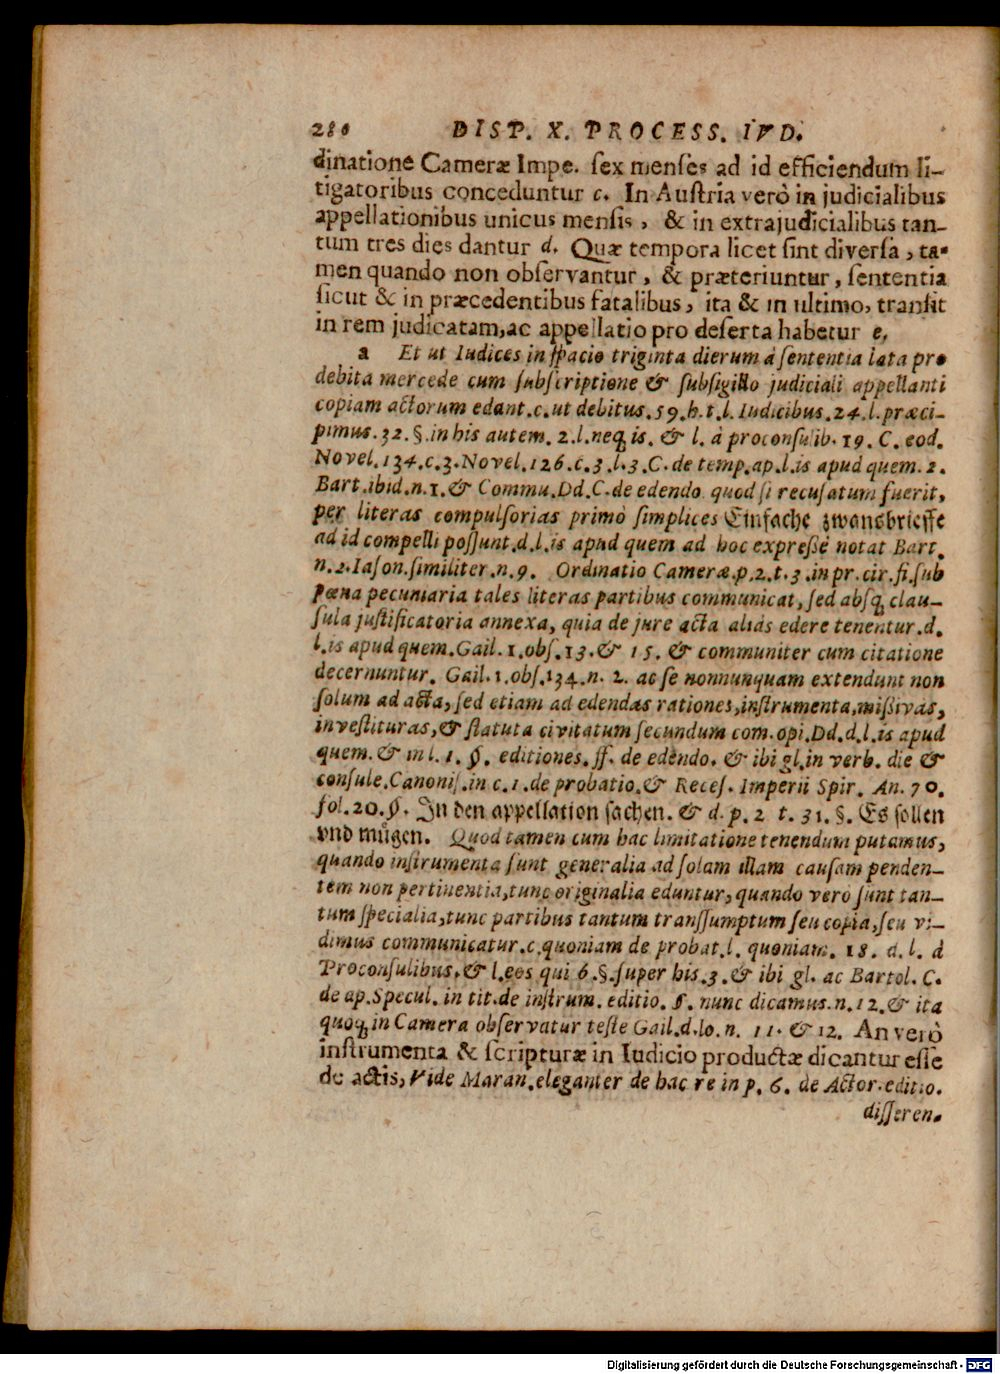 280 DISP. X. PROCESS. IVD.
dinatione Cameræ Impe. ſex menſes ad id efficiendum li-
tigatoribus conceduntur c. In Auſtria verò in judicialibus
appellationibus unicus menſis, & in extrajudicialibus tan-
tum tres dies dantur d. Quæ tempora licet ſint diverſa, ta-
men quando non obſervantur, & præteriuntur, ſententia
ſicut & in præcedentibus fatalibus, ita & in ultimo, tranſit
in rem judicatam, ac appellatio pro deſerta habetur e.
a Et ut Iudices in ſpacio triginta dierum à ſententia lata pro
debita mercede cum ſubſcriptione & ſubſigillo judiciali appellanti
copiam actorum edant. c. ut debitus. 59. h. t. l. Iudicibus. 24. l. præci-
pimus. 32. §. in his autem. 2. l. neq; is. & l. à proconſulib. 19. C. eod.
Novel. 134. c. 3. Novel. 126. c. 3. l. 3. C. de temp. ap. l. is apud quem. 2.
Bart. ibid. n. 1. & Commu. Dd. C. de edendo quod ſi recuſatum fuerit,
per literas compulſorias primò ſimplices Einfache zwansbrieffe
ad id compelli poſſunt. d. l. is apud quem ad hoc expreßè notat Bart.
n. 2. Iaſon. ſimiliter. n. 9. Ordinatio Cameræ. p. 2. t. 3. in pr. cir. fi. ſub
pœna pecuniaria tales literas partibus communicat, ſed abſq; clau-
ſula juſtificatoria annexa, quia de jure acta aliàs edere tenentur. d.
l. is apud quem. Gail. 1. obſ. 13. & 15. & communiter cum citatione
decernuntur. Gail. 1. obſ. 134. n. 2. ac ſe nonnunquam extendunt non
ſolum ad acta, ſed etiam ad edendas rationes, inſtrumenta, mißivas,
inveſtituras, & ſtatuta civitatum ſecundum com. opi. Dd. d. l. is apud
quem. & in l. 1. §. editiones. ff. de edendo. & ibi gl. in verb. die &
conſule. Canoniſ. in c. 1. de probatio. & Receſ. Imperii Spir. An. 70.
fol. 20. §. In den appellation ſachen. & d. p. 2 t. 31. §. Es ſollen
vnd mügen. Quod tamen cum hac limitatione tenendum putamus,
quando inſtrumenta ſunt generalia ad ſolam illam cauſam penden-
tem non pertinentia, tunc originalia eduntur, quando verò ſunt tan-
tum ſpecialia, tunc partibus tantum tranſſumptum ſeu copia, ſeu vi-
dimus communicatur. c. quoniam de probat. l. quoniam. 18. d. l. à
Proconſulibus. & l. eos qui 6. §. ſuper his. 3. & ibi gl. ac Bartol. C.
de ap. Specul. in tit. de inſtrum. editio. §. nunc dicamus. n. 12. & ita
quoq; in Camera obſervatur teſte Gail. d. lo. n. 11. & 12. An verò
inſtrumenta & ſcripturæ in Iudicio productæ dicantur eſſe
de actis, Vide Maran. eleganter de hac re in p. 6. de Actor. editio.
differen.
Digitalisierung gefördert durch die Deutsche Forschungsgemeinschaft - DFG